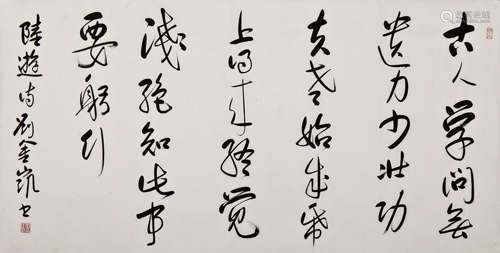 古人学问无
遗力少壮功
夫老始成纸
上得来终觉
浅绝知此事
要躬行
陆游诗刘金凯书